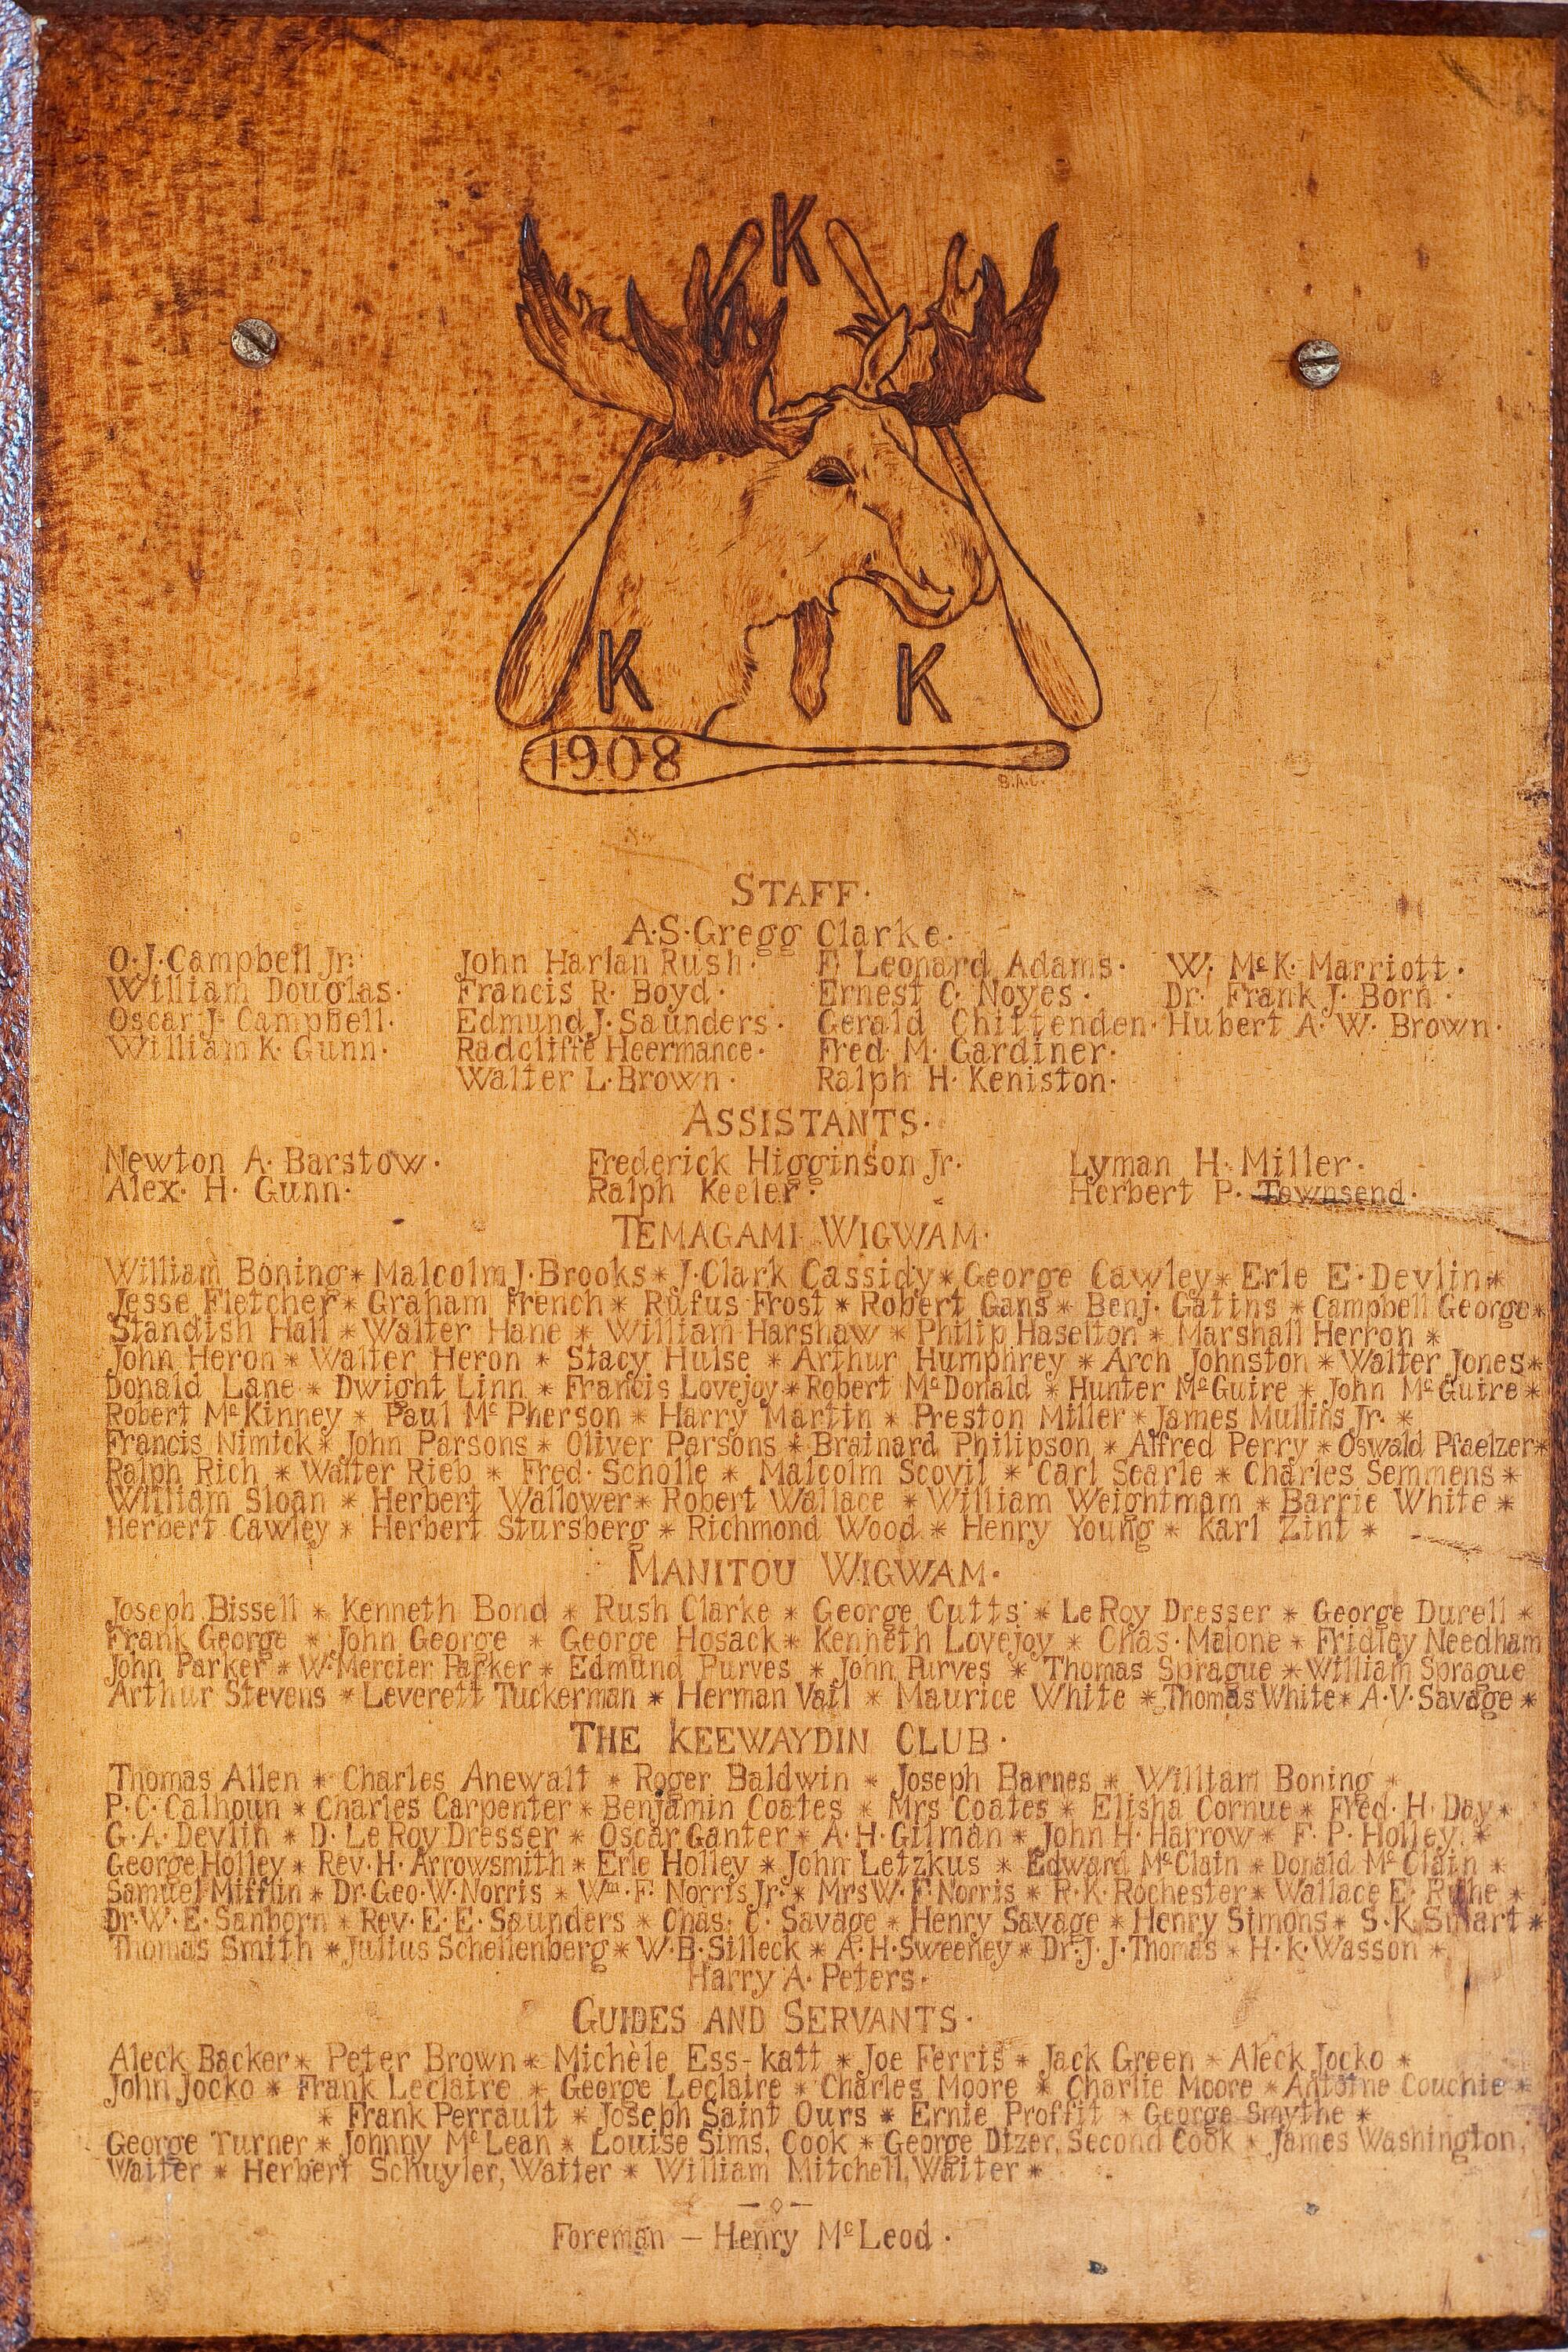 K
K K
1908
B.A.C.
STAFF·
A·S·Gregg Clarke·
O·J·Campbell Jr· John Harlan Rush· F· Leonard Adams· W· McK· Marriott·
William Douglas· Francis R· Boyd· Ernest C· Noyes· Dr· Frank J· Born·
Oscar J· Campbell· Edmund J· Saunders· Gerald Chittenden· Hubert A· W· Brown·
William K· Gunn· Radcliffe Heermance· Fred· M· Gardiner·
Walter L· Brown· Ralph H· Keniston·
ASSISTANTS·
Newton A· Barstow· Frederick Higginson Jr· Lyman H· Miller·
Alex· H· Gunn· Ralph Keeler· Herbert P· Townsend·
TEMAGAMI WIGWAM·
William Boning * Malcolm J· Brooks * J· Clark Cassidy * George Cawley * Erle E· Devlin *
Jesse Fletcher * Graham French * Rufus Frost * Robert Gans * Benj· Gatins * Campbell George *
Standish Hall * Walter Hane * William Harshaw * Philip Haselton * Marshall Herron *
John Heron * Walter Heron * Stacy Hulse * Arthur Humphrey * Arch Johnston * Walter Jones *
Donald Lane * Dwight Linn * Francis Lovejoy * Robert McDonald * Hunter McGuire * John McGuire *
Robert McKinney * Paul McPherson * Harry Martin * Preston Miller * James Mullins Jr· *
Francis Nimick * John Parsons * Oliver Parsons * Brainard Philipson * Alfred Perry * Oswald Pfaelzer *
Ralph Rich * Walter Rieb * Fred· Scholle * Malcolm Scovil * Carl Searle * Charles Semmens *
William Sloan * Herbert Wallower * Robert Wallace * William Weightmam * Barrie White *
Herbert Cawley * Herbert Stursberg * Richmond Wood * Henry Young * Karl Zint *
MANITOU WIGWAM·
Joseph Bissell * Kenneth Bond * Rush Clarke * George Cutts * LeRoy Dresser * George Durell *
Frank George * John George * George Hosack * Kenneth Lovejoy * Chas· Malone * Fridley Needham
John Parker * W· Mercier Parker * Edmund Purves * John Purves * Thomas Sprague * William Sprague
Arthur Stevens * Leverett Tuckerman * Herman Vail * Maurice White * Thomas White * A·V·Savage *
THE KEEWAYDIN CLUB·
Thomas Allen * Charles Anewalt * Roger Baldwin * Joseph Barnes * William Boning *
P·C·Calhoun * Charles Carpenter * Benjamin Coates * Mrs Coates * Elisha Cornue * Fred· H· Day *
G·A·Devlin * D· LeRoy Dresser * Oscar Ganter * A·H·Gilman * John H· Harrow * F· P· Holley *
George Holley * Rev·H· Arrowsmith * Erle Holley * John Letzkus * Edward McClain * Donald McClain *
Samuel Mifflin * Dr·Geo·W·Norris * Wm·F· Norris Jr· * Mrs W·F·Norris * R·K·Rochester * Wallace E· Ruhe *
Dr·W·E·Sanborn * Rev·E·E·Saunders * Chas· C· Savage * Henry Savage * Henry Simons * S·K·Smart *
Thomas Smith * Julius Schellenberg * W·B·Silleck * A·H·Sweeney * Dr·J·J·Thomas * H·K·Wasson *
Harry A· Peters·
GUIDES AND SERVANTS·
Aleck Backer * Peter Brown * Michèle Ess-katt * Joe Ferris * Jack Green * Aleck Jocko *
John Jocko * Frank Leclaire * George Leclaire * Charles Moore * Charlie Moore * Antoine Couchie *
* Frank Perrault * Joseph Saint Ours * Ernie Proffit * George Smythe *
George Turner * Johnny McLean * Louise Sims, Cook * George Dizer, Second Cook * James Washington,
Waiter * Herbert Schuyler, Waiter * William Mitchell, Waiter *
Foreman – Henry McLeod·